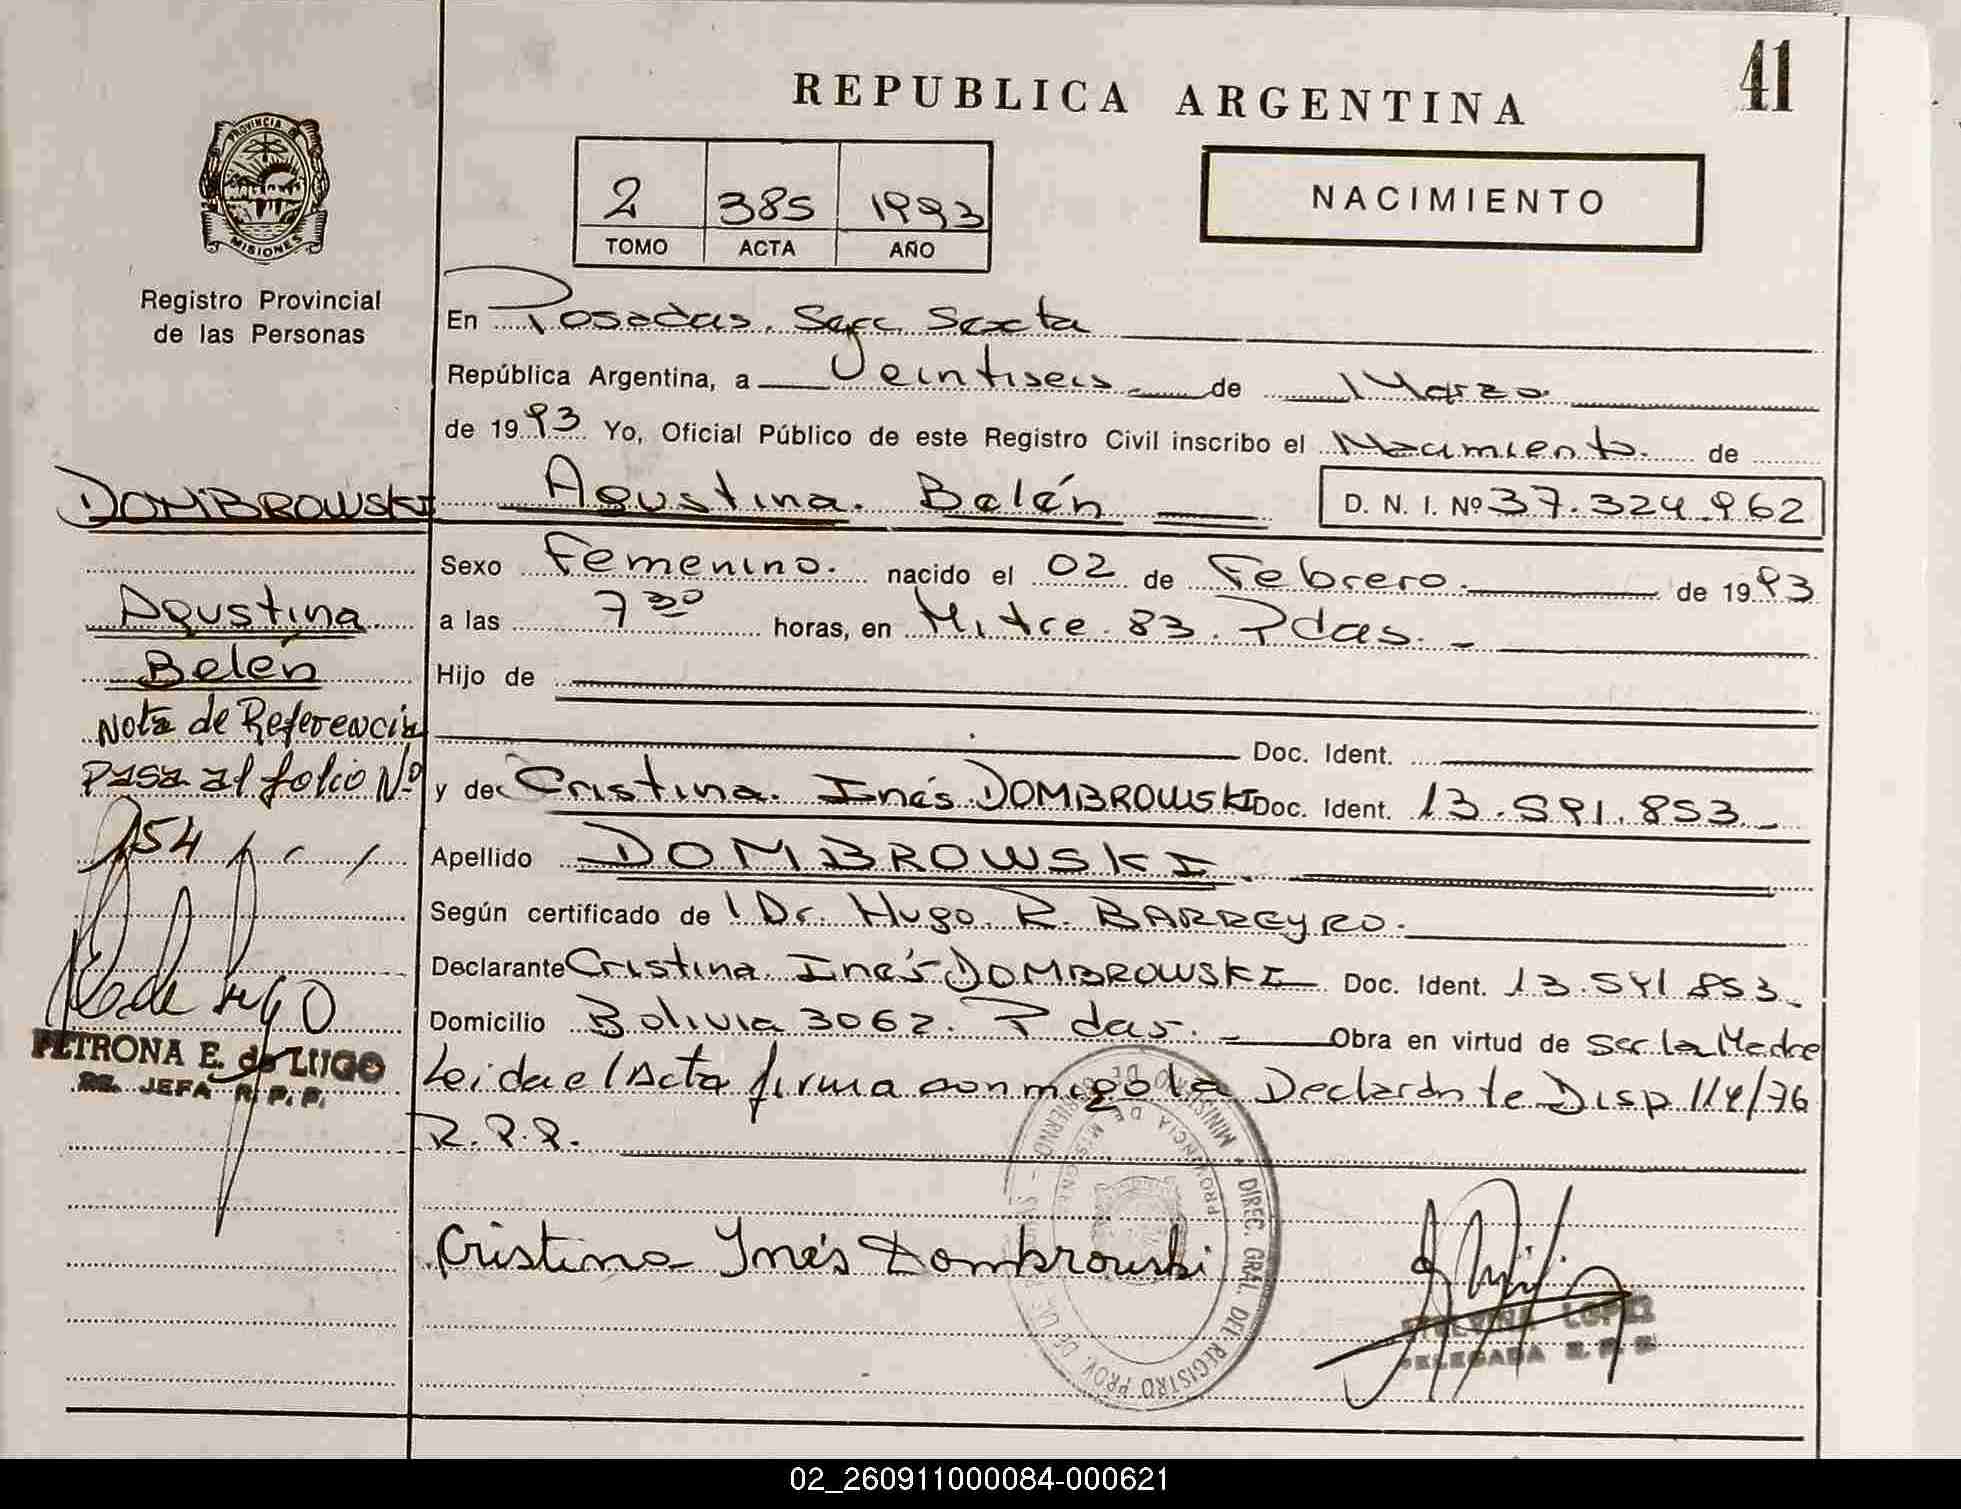 41
REPUBLICA ARGENTINA
PROVINCIA DE
MISIONES
Registro Provincial
de las Personas
2 385 1993
TOMO ACTA AÑO
NACIMIENTO
En Posadas. Secc Sexta
República Argentina, a Veintiseis de Marzo
de 1993 Yo, Oficial Público de este Registro Civil inscribo el Nacimiento de
DOMBROWSKI
Agustina. Belén D. N. I. Nº 37.324.962
Sexo Femenino. nacido el 02 de Febrero. de 1993
Agustina
Belén
a las 7 30 horas, en Mitre 83. Pdas.
Hijo de
Nota de Referencia
Pasa al folio Nº
154
Doc. Ident.
y de Cristina. Inés DOMBROWSKI Doc. Ident. 13.591.853
Apellido DOMBROWSKI.
Según certificado de Dr. Hugo. R. BARREYRO.
Declarante Cristina. Inés DOMBROWSKI Doc. Ident. 13.541.853
Domicilio Bolivia 3062. Pdas. Obra en virtud de Ser la Madre
PETRONA E. de LUGO
JEFA R. P. P.
Leida el Acta firma conmigo la Declarante Disp 114/76
R.P.P.
Cristina Inés Dombrowski
MINISTERIO DE GOBIERNO
PROVINCIA DE MISIONES
DIREC. GRAL. DEL REGISTRO PROV. DE LAS
LOPEZ
DELEGADA R. P. P.
02_260911000084-000621